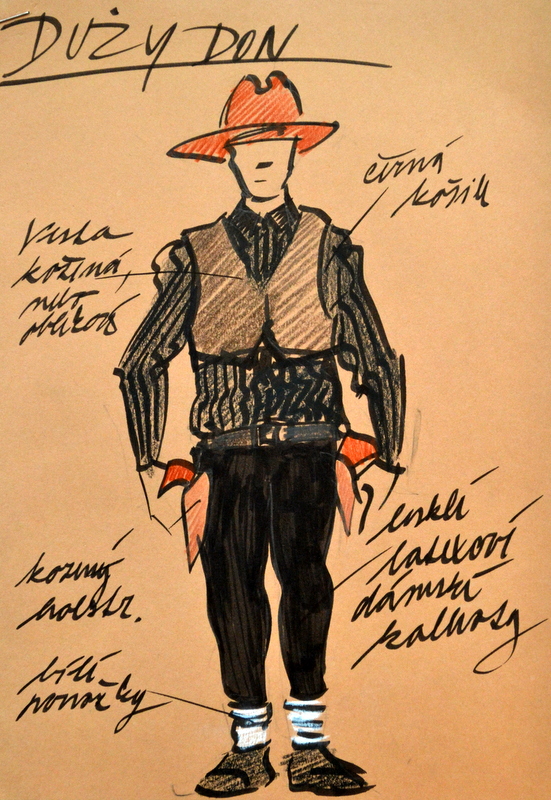 DUŽY DON
černá
košile
Vesta
kožená,
nebo
obleková
kožený
holstr.
lesklé
latexové
dámské
kalhoty
bílé
ponožky